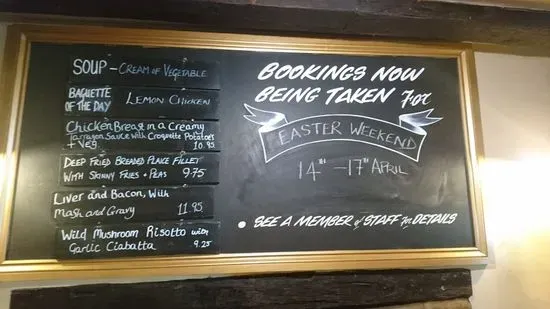 SOUP - CREAM OF VEGETABLE
BAGUETTE
OF THE DAY LEMON CHICKEN
Chicken Breast in a Creamy
Tarragon Sauce with Croquette Potatoes
+ Veg. 10.95
DEEP FRIED BREADED PLAICE FILLET
WITH SKINNY FRIES + PEAS 9.75
Liver and Bacon, With
Mash and Gravy 11.95
Wild Mushroom Risotto with
Garlic Ciabatta 9.25
BOOKINGS NOW
BEING TAKEN For
EASTER WEEKEND
14TH - 17TH APRIL
• SEE A MEMBER of STAFF For DETAILS